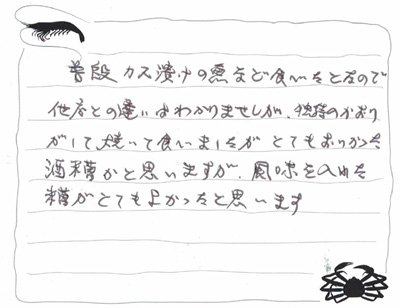 普段カス漬けの魚など食べたとないので
他店との違いはわかりませしが、独特のかおり
がして、焼いて食べましたが とてもおいかった
酒糟かと思いますが、風味を入れた
糟がとてもよかったと思います